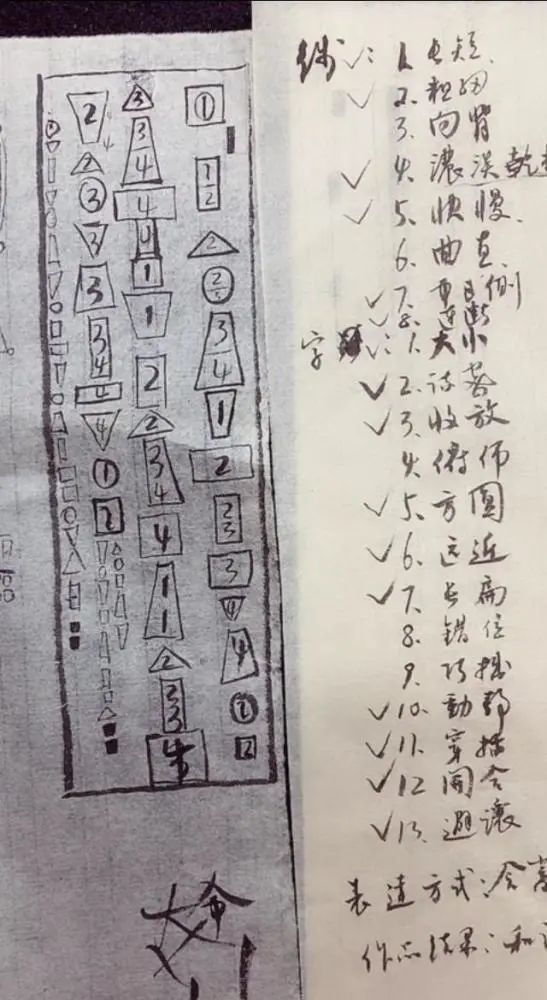 ① 1 2 2 2 3 4 1 2 2 3 3 4 4 ① 2
3 3 4 4 4 1 1 2 2 3 4 4 1 1 2 2 3 4
2 2 ③ 3 3 3 4 4 4 ① 2
线: 1. 长短.
2. 粗细
3. 向背
4. 濃淡乾
5. 快慢.
6. 曲直.
7. 侧
8. 連斷
字: 1. 大小
2.
3. 收放
4. 俯仰
5. 方圓
6. 远近
7. 长扁
8. 錯位
9. 巧拙
10. 動静
11. 穿插
12 開合
13. 避讓
表達方式:含
作品结果:和